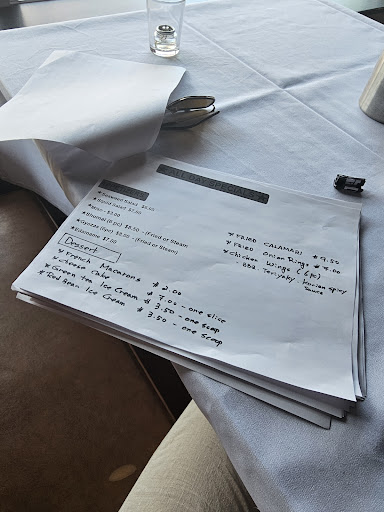 ★ Seaweed Salad $5.50
★ Squid Salad $7.50
★ Miso - $3.00
★ Shumai (6 pc) $5.50 - (Fried or Steam
★ Gyoza (6pc) $5.50 - (Fried or Steam)
★ Edamame $7.00
Dessert
★ French Macarons $2.00
★ cheese cake $7.00 - one slice
★ Green tea Ice Cream $3.50 - one scoop
★ Red Bean Ice Cream $3.50 - one scoop
★ FRIED CALAMARI $9.50
★ FRIED Onion Rings $7.00
★ chicken Wings (6pc)
BBQ Teriyaki Korian spicy
sauce